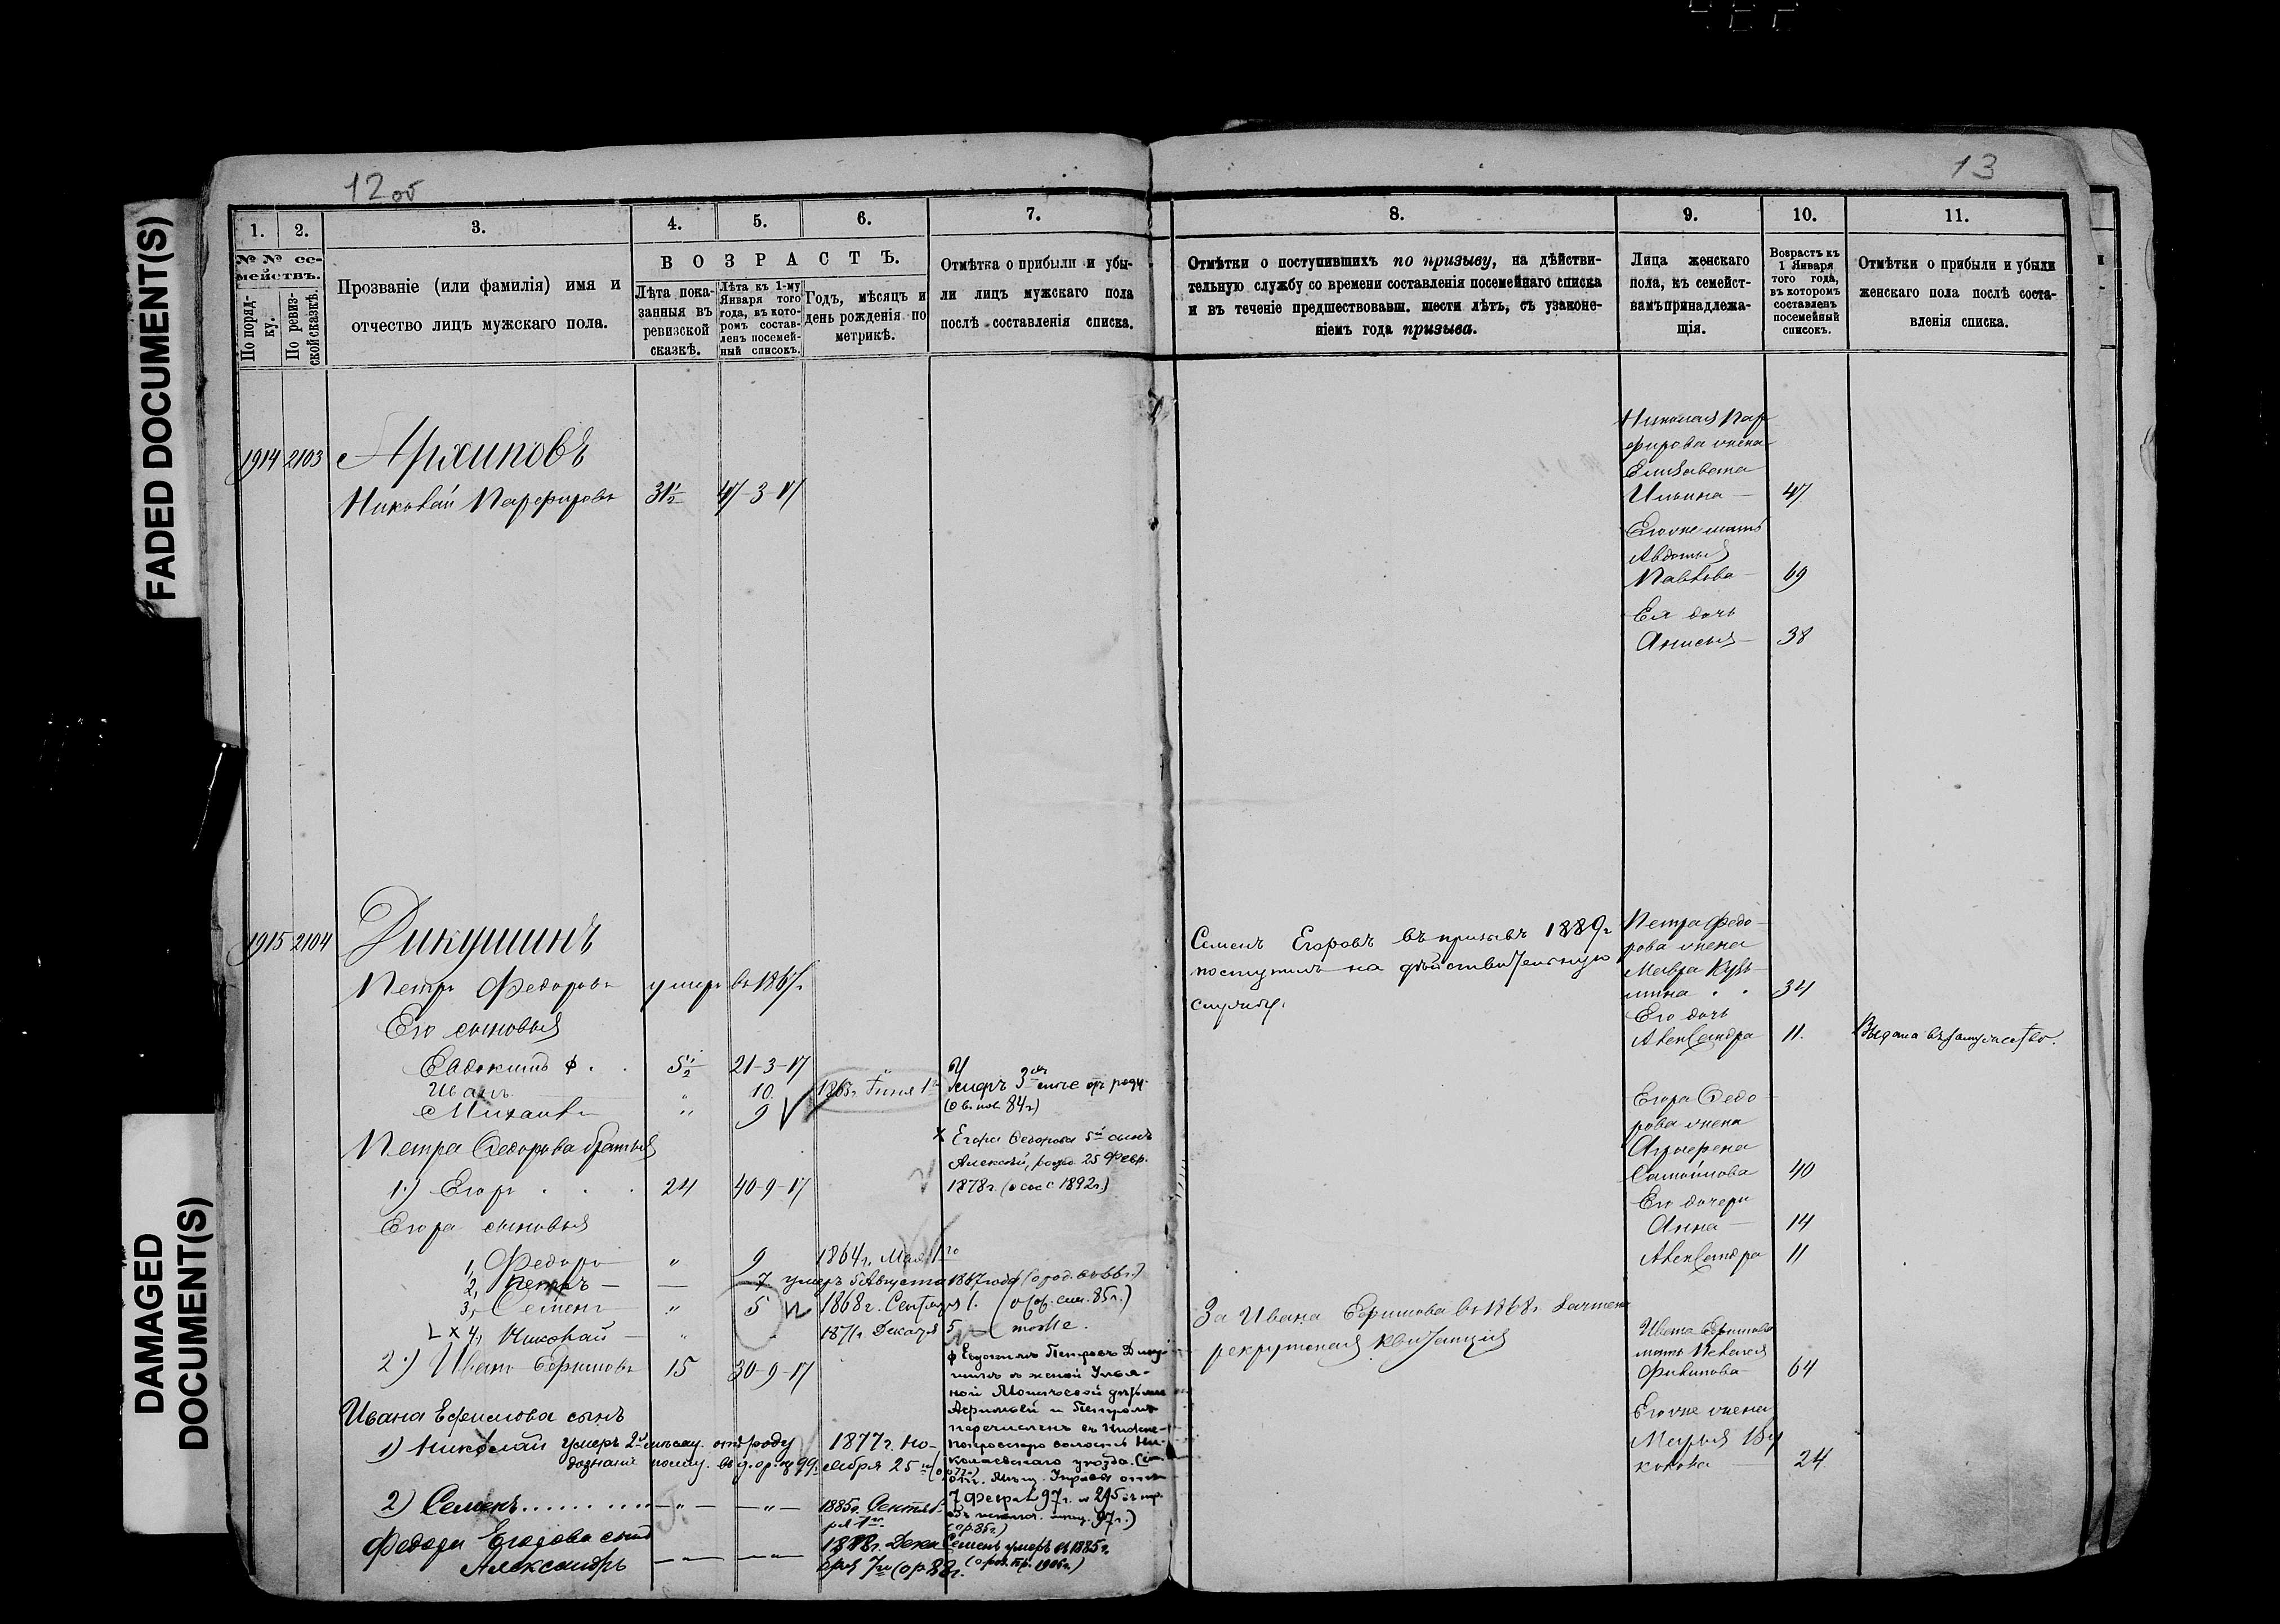 FADED DOCUMENT(S)
DAMAGED
DOCUMENT(S)
12 об
1.
2.
3.
4.
5.
6.
7.
№ № се-
мействъ.
По поряд-
ку.
По ревиз-
ской сказкѣ.
Прозваніе (или фамилія) имя и
отчество лицъ мужскаго пола.
В О З Р А С Т Ъ.
Лѣта пока-
занныя въ
ревизской
сказкѣ.
Лѣта къ 1-му
Января того
года, въ кото-
ромъ состав-
ленъ посемей-
ный списокъ.
Годъ, мѣсяцъ и
день рожденія по
метрикѣ.
Отмѣтка о прибыли и убы-
ли лицъ мужскаго пола
послѣ составленія списка.
1914 2103 Архиповъ
Николай Парфировъ 31½ 47-3-17
1915 2104 Дикушинъ
Петръ Федоровъ умеръ въ 1867г.
Его сыновья
Евдокимъ ф . . 5½ 21-3-17
Иванъ " 10. 1863г. Іюня 1
Михаилъ " 9
Умеръ 3
(о въ нов. 84г.)
Петра Федорова братья
1.) Егоръ . . . 24 40-9-17
х Егора Федорова 5й сынъ
Алексѣй, рожд. 25 Февр.
1878г. 1892г.)
Егора сыновья
1, Федоръ " 9 1864г. Мая 1го
2, Петръ — — 7 умеръ 5 Августа 1867 года
3, Семенъ " 5 1868г. Сентября 1.
х 4, Николай — " 1871г. Декабря 5 — тоже.
2.) Иванъ Ефимовъ 15 30-9-17
ф Евдокимъ Петровъ Дику-
шинъ съ женой Улья-
ной
и Петромъ
перечисленъ въ
волость Ни-
колаевскаго уѣзда.
7 Февраля 97г. № 295
Ивана Ефимова сынъ
1) Николай умеръ 2 отъ роду 1877г. Но-
ября 25
2) Семенъ......... — " — — " — 1885г. Сентяб-
ря 1го
(ор. 85г.)
Семенъ умеръ въ 1885г.
1906г.)
Федора Егорова сынъ
Александръ 1888г. Дека-
бря 7го (ор. 88г.
13
8.
9.
10.
11.
Отмѣтки о поступившихъ по призыву, на дѣйстви-
тельную службу со времени составленія посемейнаго списка
и въ теченіе предшествовавш. шести лѣтъ, съ узаконе-
ніемъ года призыва.
Лица женскаго
пола, къ семейст-
вамъ принадлежа-
щія.
Возрастъ къ
1 Января
того года,
въ которомъ
составленъ
посемейный
списокъ.
Отмѣтки о прибыли и убыли
женскаго пола послѣ соста-
вленія списка.
Николая Пар-
фирова жена
Елизавета
Ильина — 47
Его же мать
Авдотья
Павлова — 69
Ея дочь
Анисья — 38
Семенъ Егоровъ въ призывъ 1889г.
поступилъ на дѣйствительную
службу.
Петра Федо-
рова жена
Мавра Кузь-
мина . . 34
Его дочь
Александра 11. Выдана въ замужество.
Егора Федо-
рова жена
Аграфена
Самойлова 40
Его дочери
Анна — 14
Александра 11
За Ивана Ефимова въ 1868г. зачтена
рекрутская квитанція
Ивана Ефимова
мать Пелагея
Филипова — 64
Его же жена
Марья
24